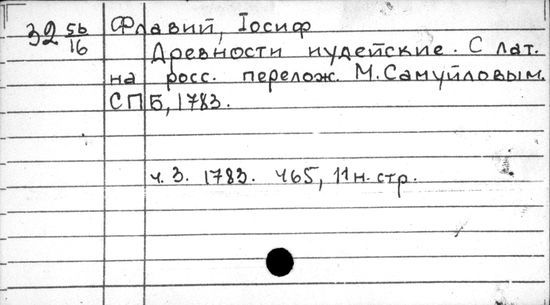 32 56/16
Флавий, Іосиф
Древности иудейские. С лат.
на росс. перелож. М. Самуйловым.
СПБ, 1783.
ч. 3. 1783. 465, 11 н. стр.